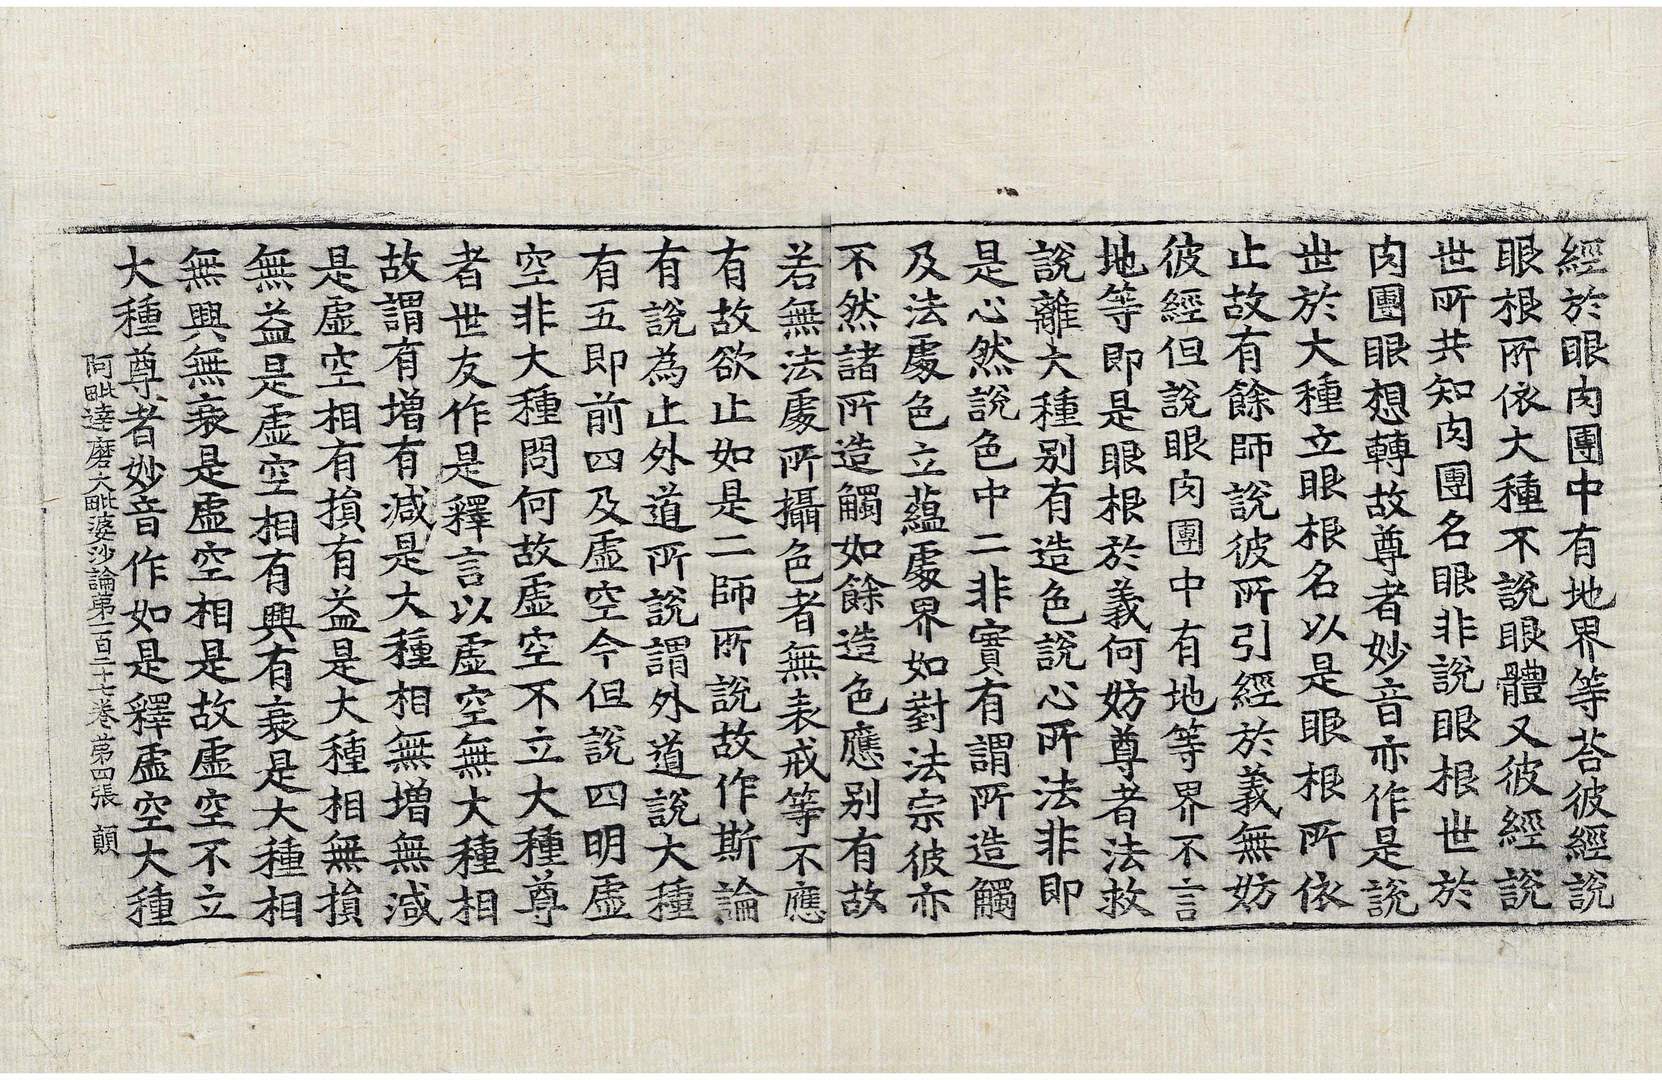 經於眼肉團中有地界等荅彼經說
眼根所依大種不說眼體又彼經說
世所共知肉團名眼非說眼根世於
肉團眼想轉故尊者妙音亦作是說
世於大種立眼根名以是眼根所依
止故有餘師說彼所引經於義無妨
彼經但說眼肉團中有地等界不言
地等即是眼根於義何妨尊者法救
說離大種別有造色說心所法非即
是心然說色中二非實有謂所造觸
及法處色立蘊處界如對法宗彼亦
不然諸所造觸如餘造色應別有故
若無法處所攝色者無表戒等不應
有故欲止如是二師所說故作斯論
有說為止外道所說謂外道說大種
有五即前四及虛空今但說四明虛
空非大種問何故虛空不立大種尊
者世友作是釋言以虛空無大種相
故謂有增有減是大種相無增無減
是虛空相有損有益是大種相無損
無益是虛空相有興有衰是大種相
無興無衰是虛空相是故虛空不立
大種尊者妙音作如是釋虛空大種
阿毗達磨大毗婆沙論第一百二十七卷 第四張 顛